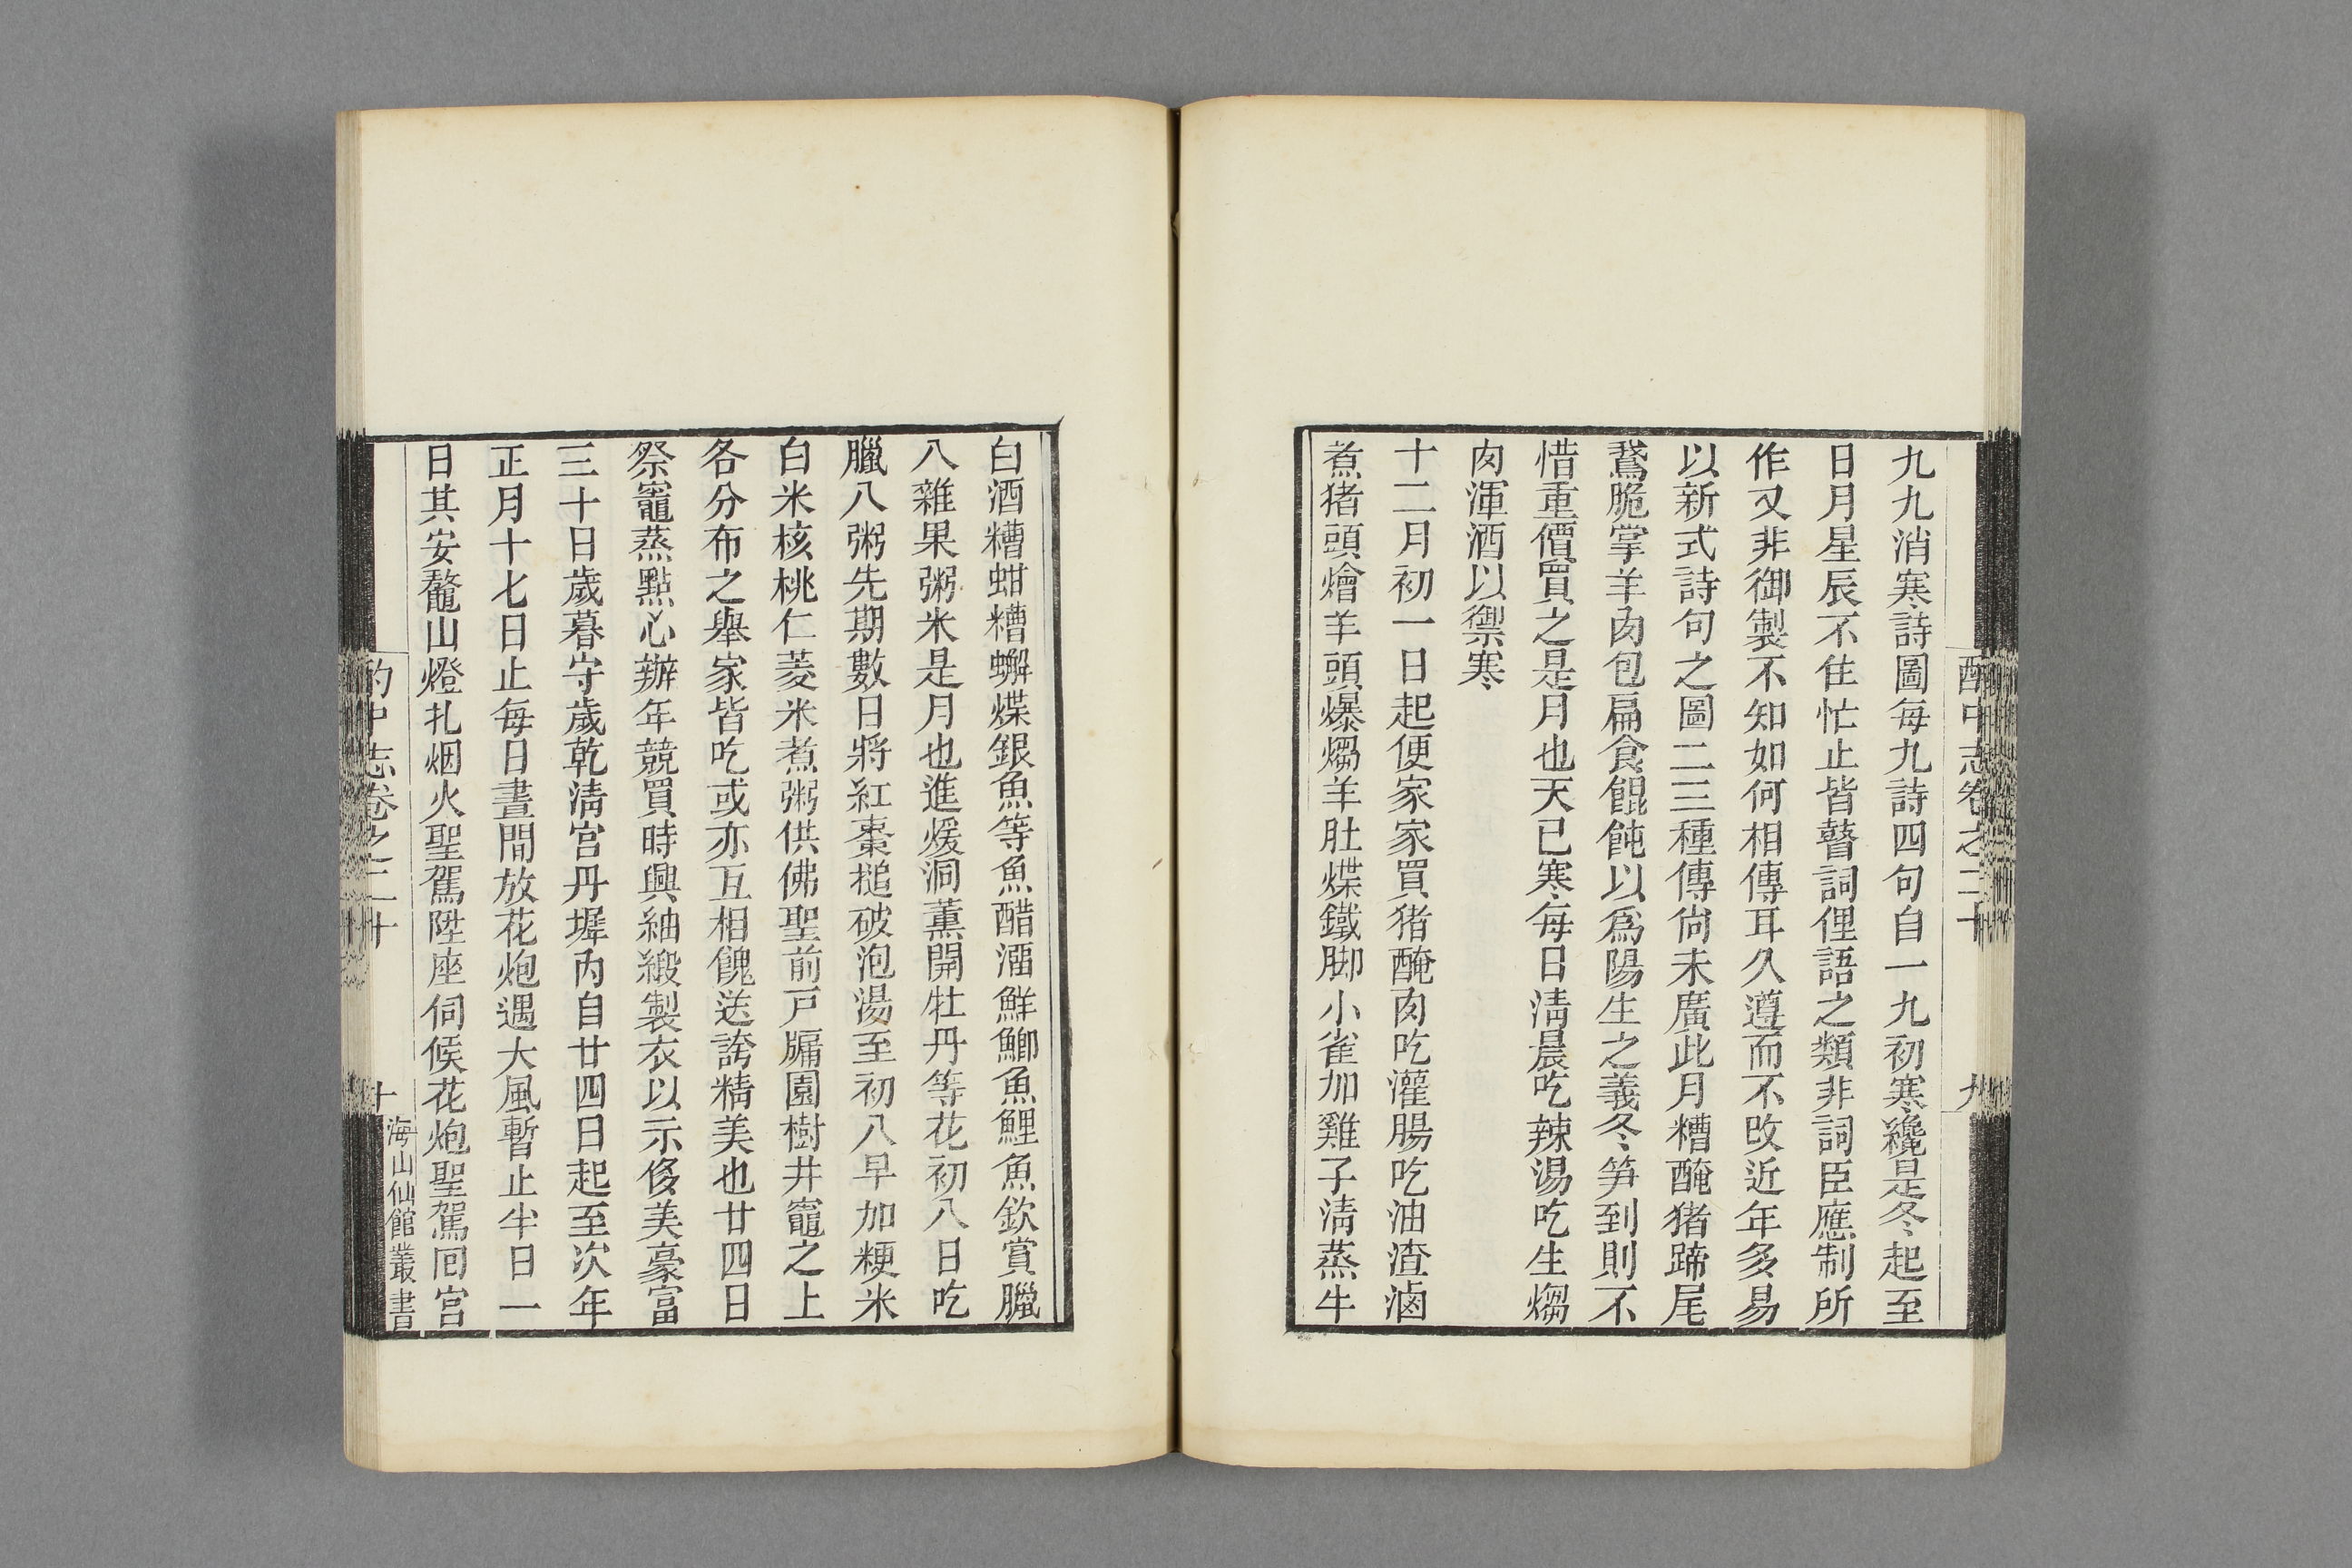 酌中志卷之二十
九
九九消寒詩圖每九詩四句自一九初寒纔是冬起至
日月星辰不住忙止皆瞽詞俚語之類非詞臣應制所
作又非御製不知如何相傳耳久遵而不改近年多易
以新式詩句之圖二三種傳尙未廣此月糟醃猪蹄尾
鵞脆掌羊肉包扁食餛飩以爲陽生之義冬笋到則不
惜重價買之是月也天已寒每日淸晨吃辣湯吃生煼
肉渾酒以禦寒
十二月初一日起便家家買猪醃肉吃灌腸吃油渣滷
煮猪頭燴羊頭爆煼羊肚煠鐵脚小雀加雞子淸蒸牛
白酒糟蚶糟蠏煠銀魚等魚醋溜鮮鯽魚鯉魚欽賞臘
八雜果粥米是月也進煖洞薰開牡丹等花初八日吃
臘八粥先期數日將紅棗搥破泡湯至初八早加粳米
白米核桃仁菱米煮粥供佛聖前戸牖園樹井竈之上
各分布之舉家皆吃或亦互相餽送誇精美也廿四日
祭竈蒸點心辦年競買時興紬緞製衣以示侈美豪富
三十日歲暮守歲乾淸宮丹墀內自廿四日起至次年
正月十七日止每日晝間放花炮遇大風暫止半日一
日其安鼇山燈扎烟火聖駕陞座伺候花炮聖駕囘宮
酌中志卷之二十
十
海山仙館叢書